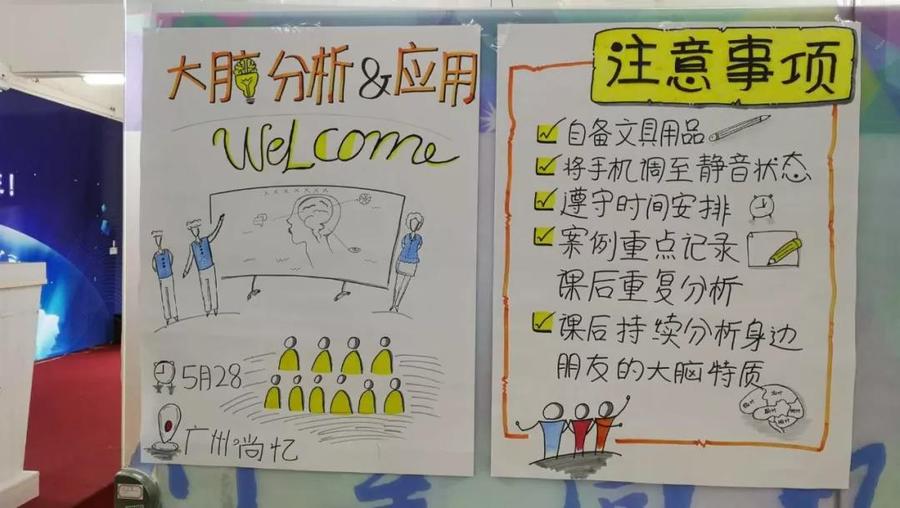 大脑分析&应用
Welcome
5月28
广州尚忆
注意事项
自备文具用品
将手机调至静音状态
遵守时间安排
案例重点记录
课后重复分析
课后持续分析身边
朋友的大脑特质